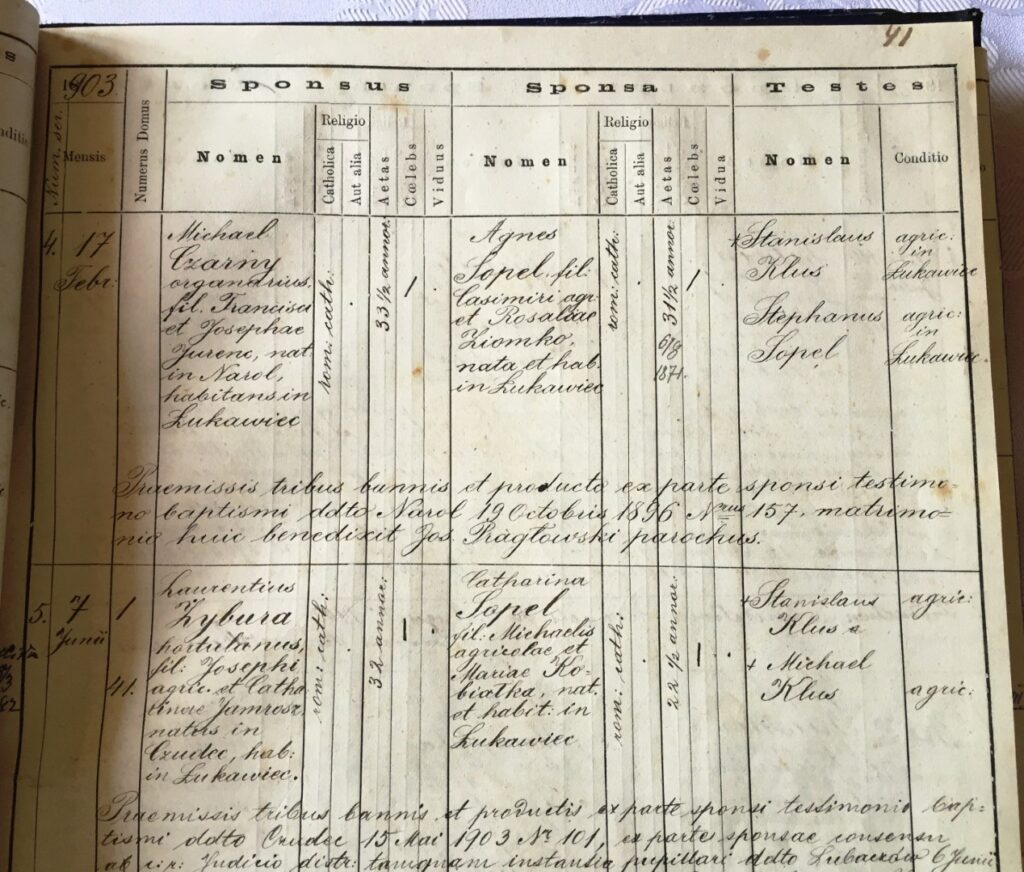 41
1903
Sponsus
Sponsa
Testes
Num. ser.
Mensis
Numerus Domus
Nomen
Religio
Catholica
Aut alia
Aetas
Cœlebs
Viduus
Nomen
Religio
Catholica
Aut alia
Aetas
Cœlebs
Vidua
Nomen
Conditio
4. 17
Febr:
Michael
Czarny
organarius,
fil. Francisci
et Josephae
Jurenc, nat.
in Narol,
habitans in
Łukawiec
rom: cath:
33 1/2 annor.
/
Agnes
Sopel, fil:
Casimiri agr:
et Rosaliae
Ziomko,
nata et hab.
in Łukawiec
rom: cath:
31 1/2 annor.
6/8
1871.
/
+ Stanislaus
Klus
agric:
in
Łukawiec
Stephanus
Sopel
agric:
in
Łukawiec.
Praemissis tribus bannis et producto ex parte sponsi testimo-
nio baptismi ddto Narol 19 Octobris 1896 Nrus 157, matrimo=
nio huic benedixit Jos. Prągłowski parochus.
5. 7
Junii
1
41.
Laurentius
Zybura
hortulanus,
fil: Josephi
agric. et Catha
rinae Jamrosz,
natus in
Czudec, hab:
in Łukawiec.
rom: cath:
32 annor:
/
Catharina
Sopel
fil: Michaelis
agricolae et
Mariae Ko-
białka, nat.
et habit: in
Łukawiec
rom: cath:
22 1/2 annor.
/
+ Stanislaus
Klus
agric:
+ Michael
Klus
agric:
Praemissis tribus bannis, et productis ex parte sponsi testimonio bap=
tismi ddto Czudec 15 Mai 1903 Nr 101, ex parte sponsae consensu
ab c: r: Judicio distr: tamquam instantia pupillari ddto Lubaczów 6 Junii